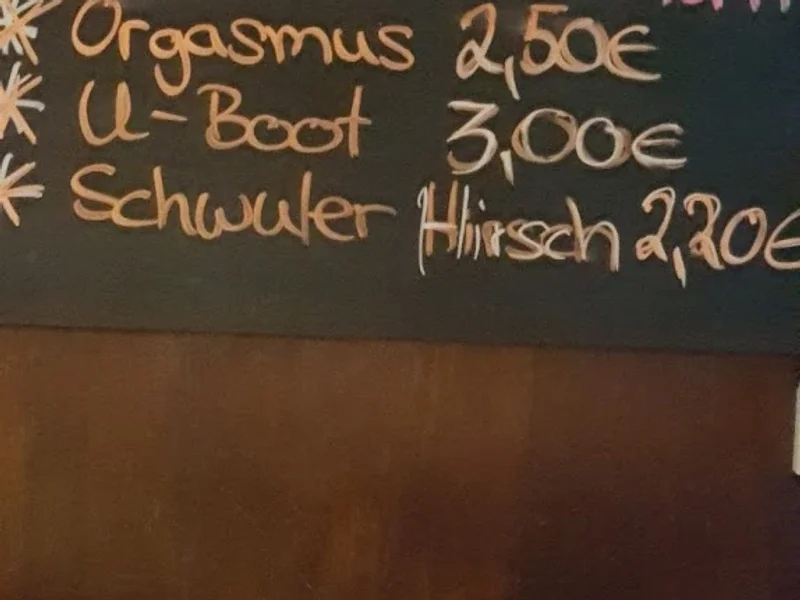 * Orgasmus 2,50€
* U-Boot 3,00€
* Schwuler Hirsch 2,20€